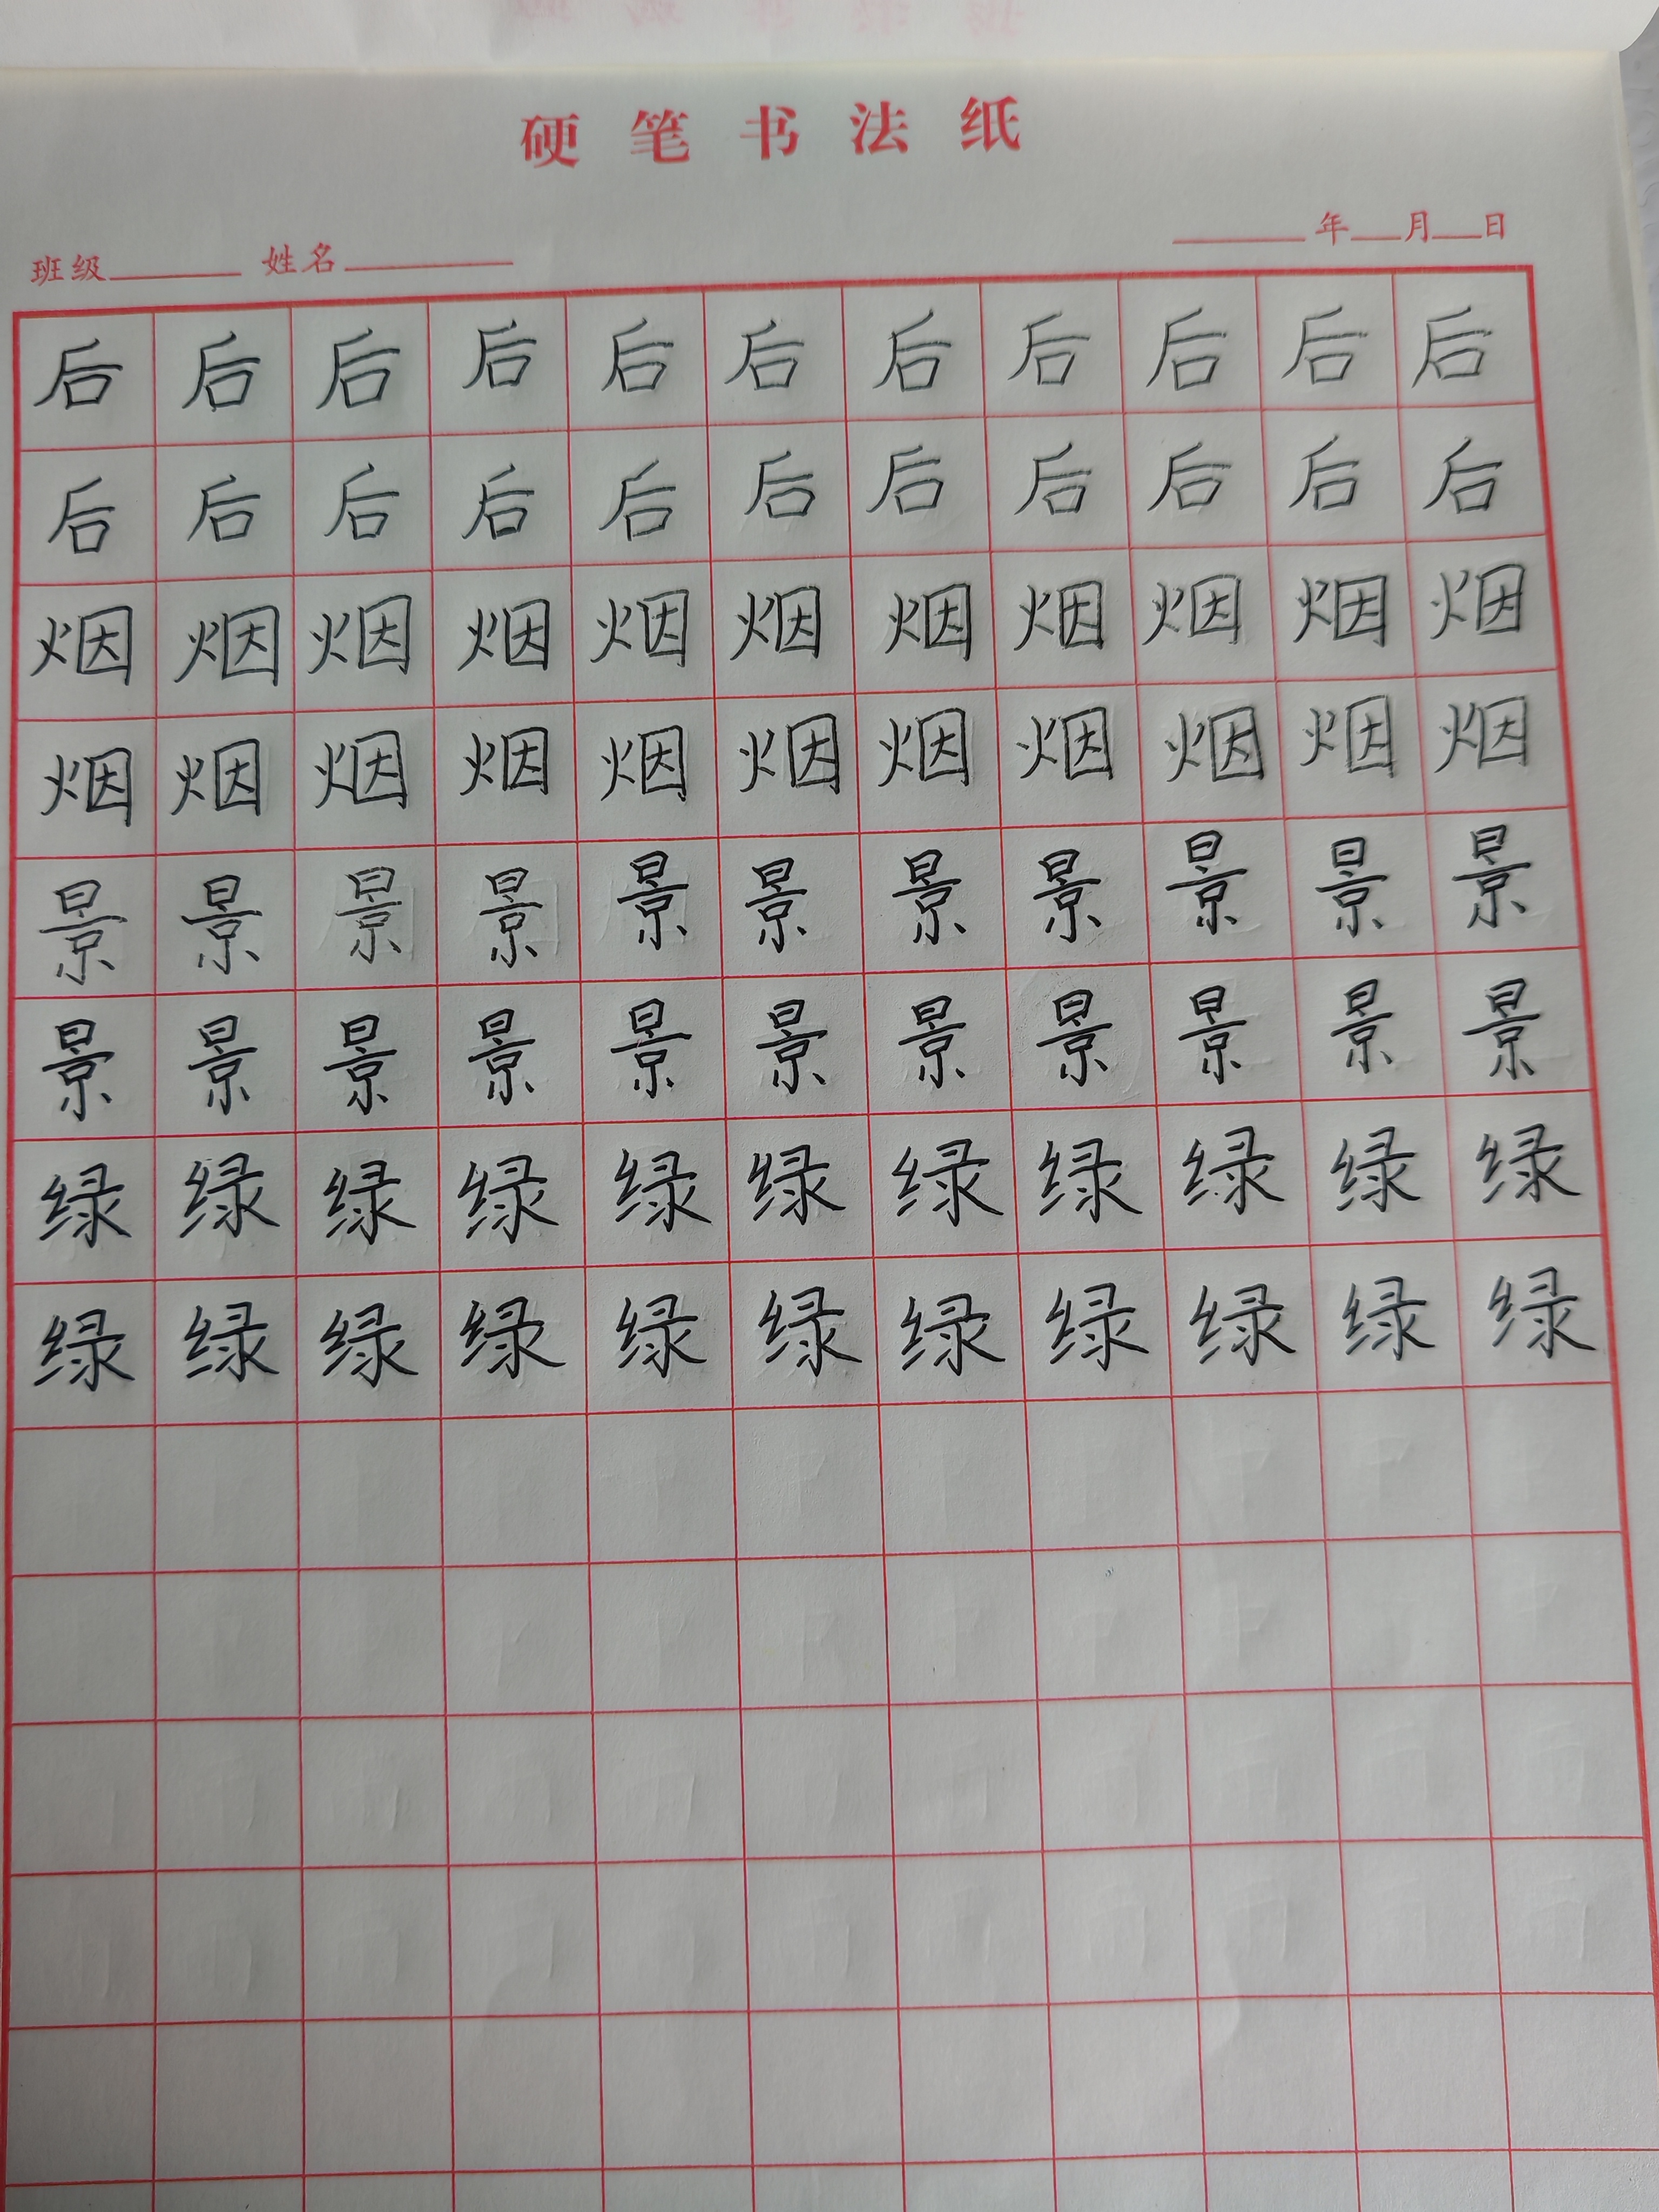 硬笔书法纸
班级 姓名 年 月 日
后后后后后后后后后后后
后后后后后后后后后后后
烟烟烟烟烟烟烟烟烟烟烟
烟烟烟烟烟烟烟烟烟烟烟
景景景景景景景景景景景
景景景景景景景景景景景
绿绿绿绿绿绿绿绿绿绿绿
绿绿绿绿绿绿绿绿绿绿绿